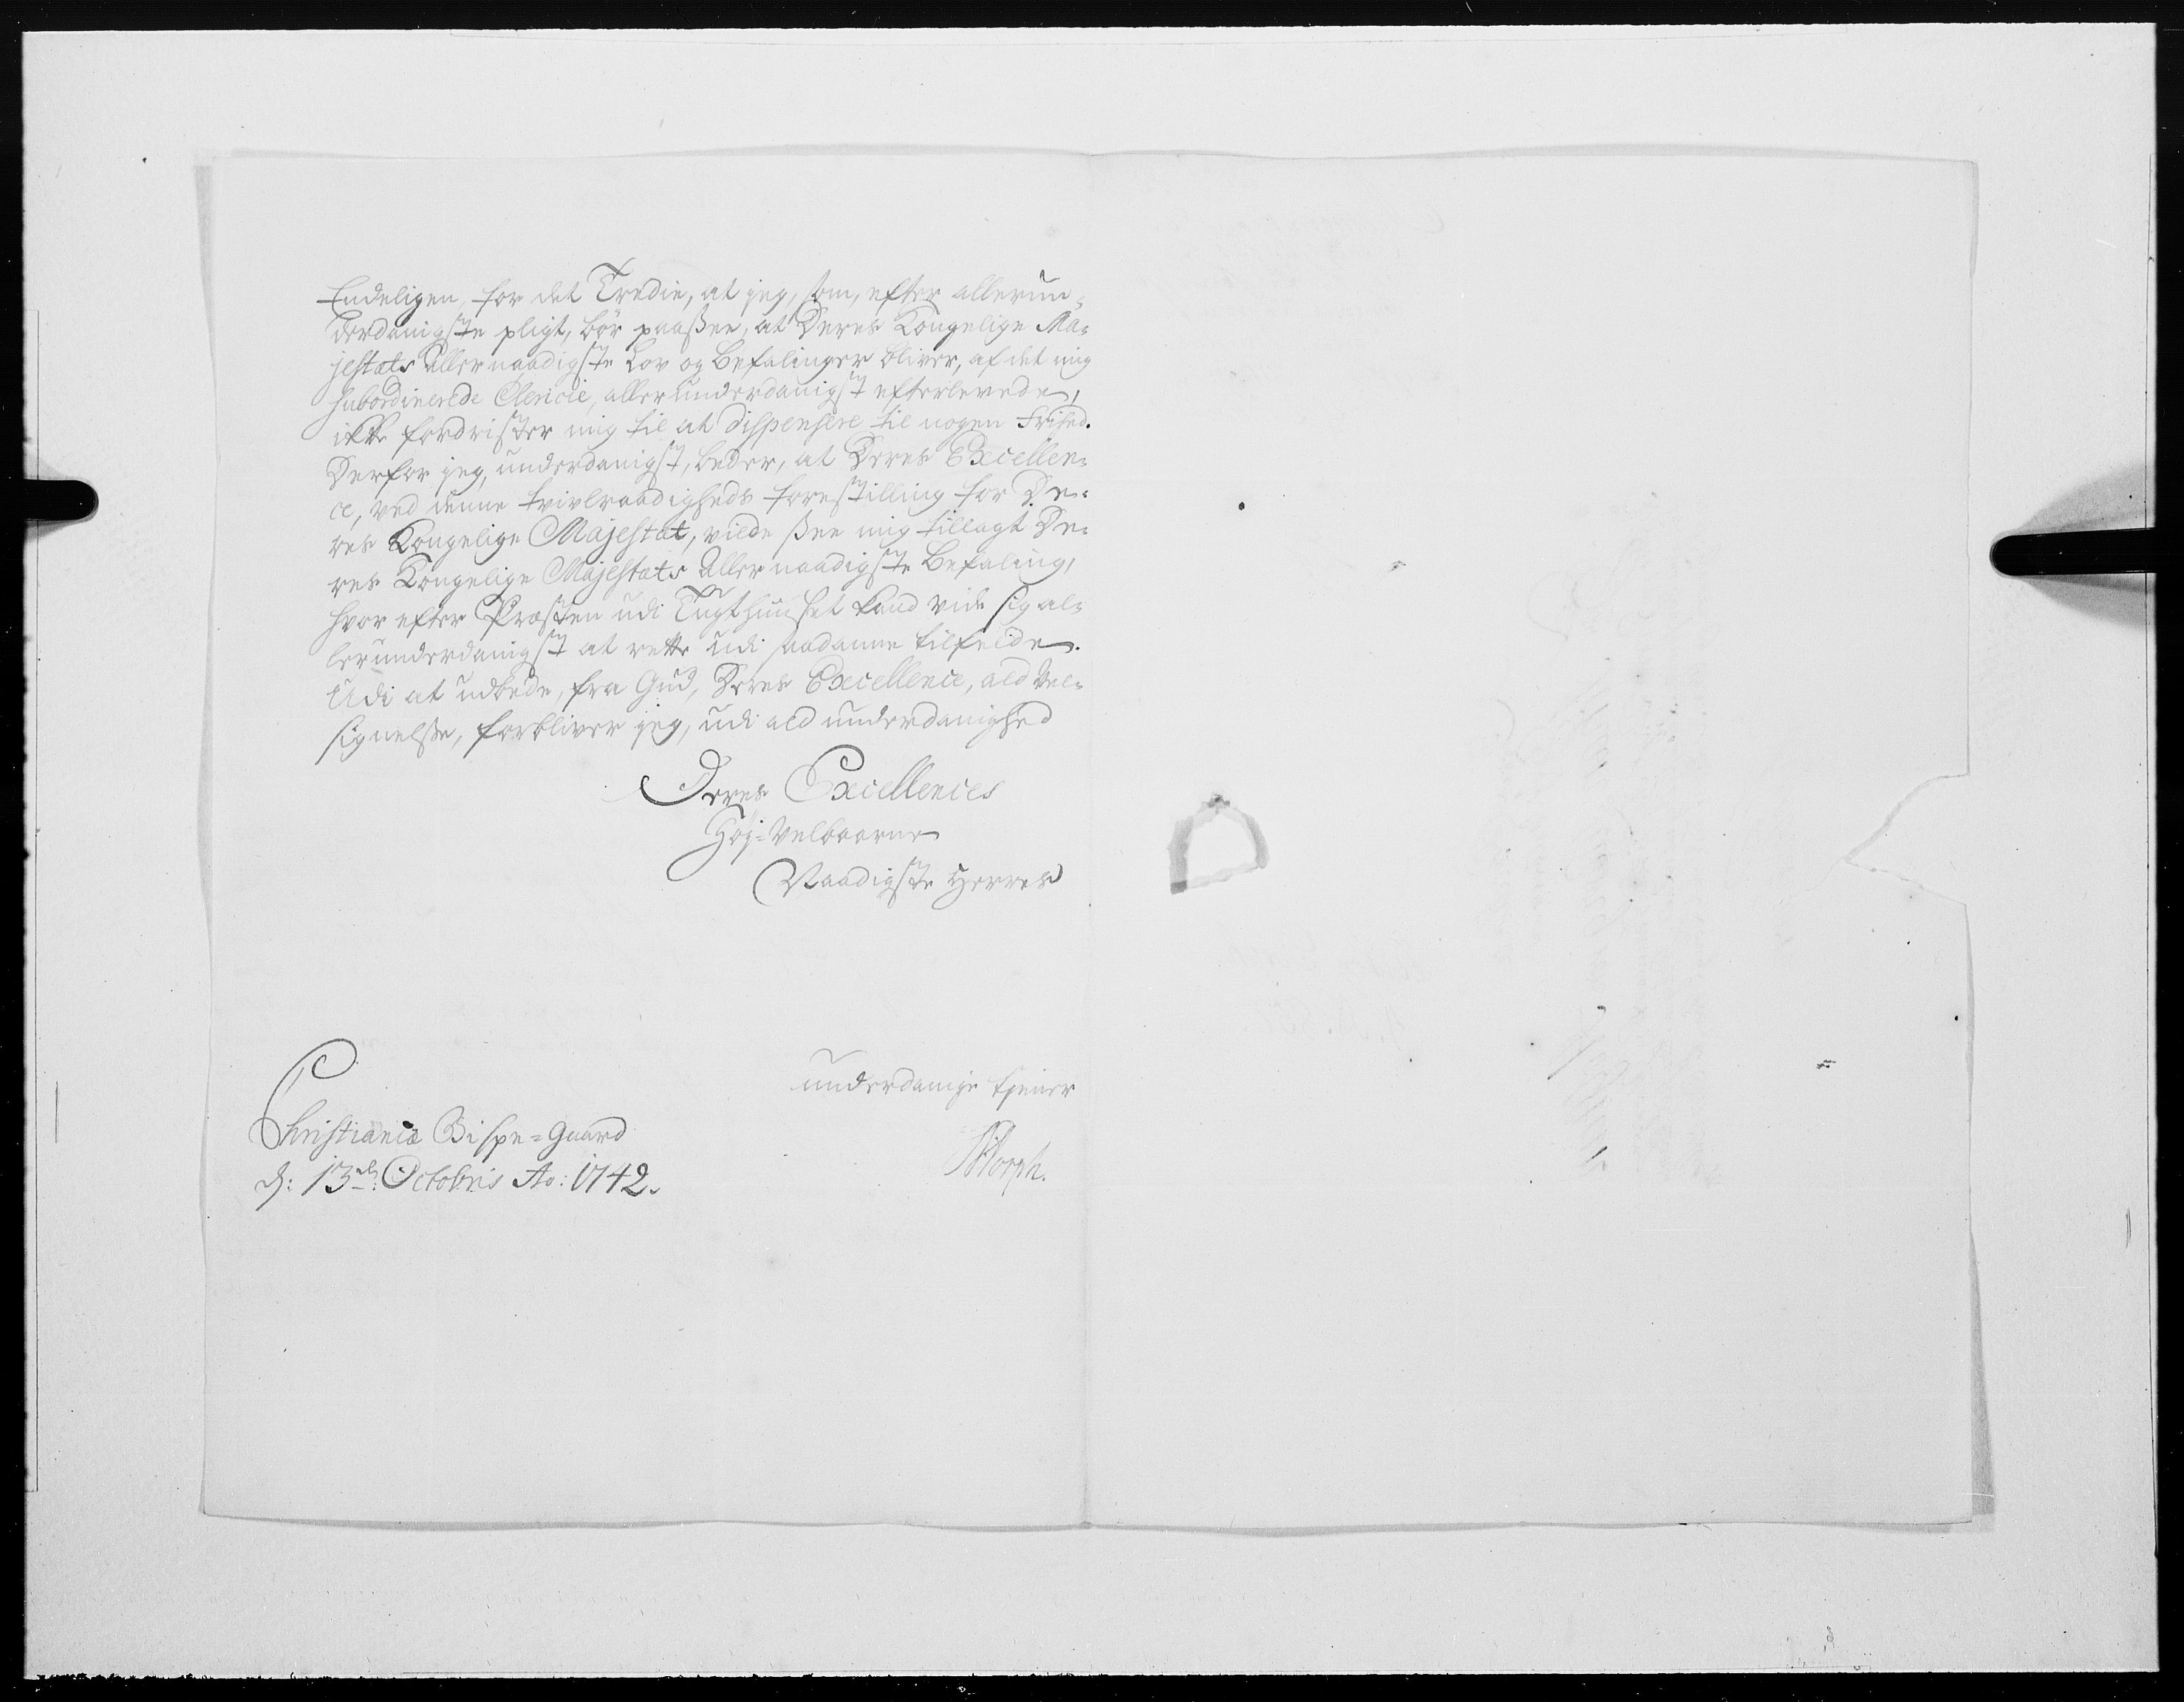 Endeligen, for det Tredie, at jeg, som, efter allerun-
derdanigste pligt, bør paassee, at Deres Kongelige Ma-
jestæts Allernaadigste Lov og Befalinger bliver, af det mig
subordinerede Clericie, allerunderdanigst efterlevede,
ikke fordrister mig til at dispensere til nogen Frihed.
Derfor jeg, underdanigst, beder, at Deres Excellen-
ce, ved denne tvivlraadigheds forestilling for De-
res Kongelige Majestæt, vilde see mig tillagt De-
res Kongelige Majestæts Allernaadigste Befaling,
hvor efter Præsten udi Tugthuuset kand vide sig al-
lerunderdanigst at rette udi saadanne tilfelde.
Udi at udbede, fra Gud, Deres Excellence, ald Vel-
signelsse, forbliver jeg, udi ald underdanighed
Deres Excellences
Høj-Velbaarne
Naadigste Herres
underdanige tjener
Christianiæ Bispe-Gaard
d: 13de Octobris Ao: 1742.
PDorph.